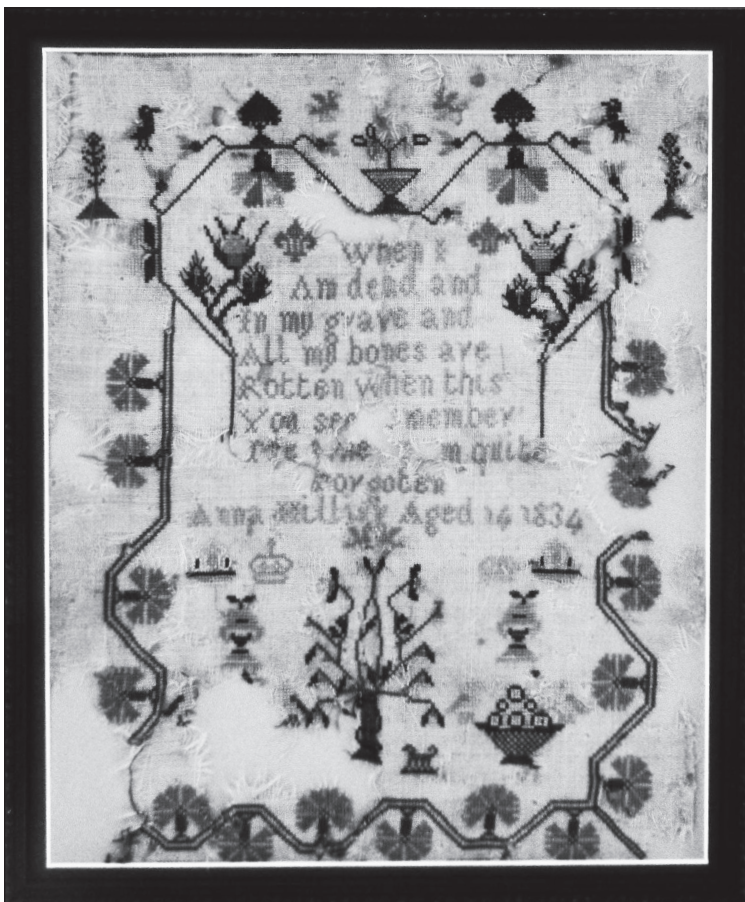 When I
Am dead and
In my grave and
All my bones are
Rotten when this
You see member
me m quite
Forgoten
Anna Aged 14 1834